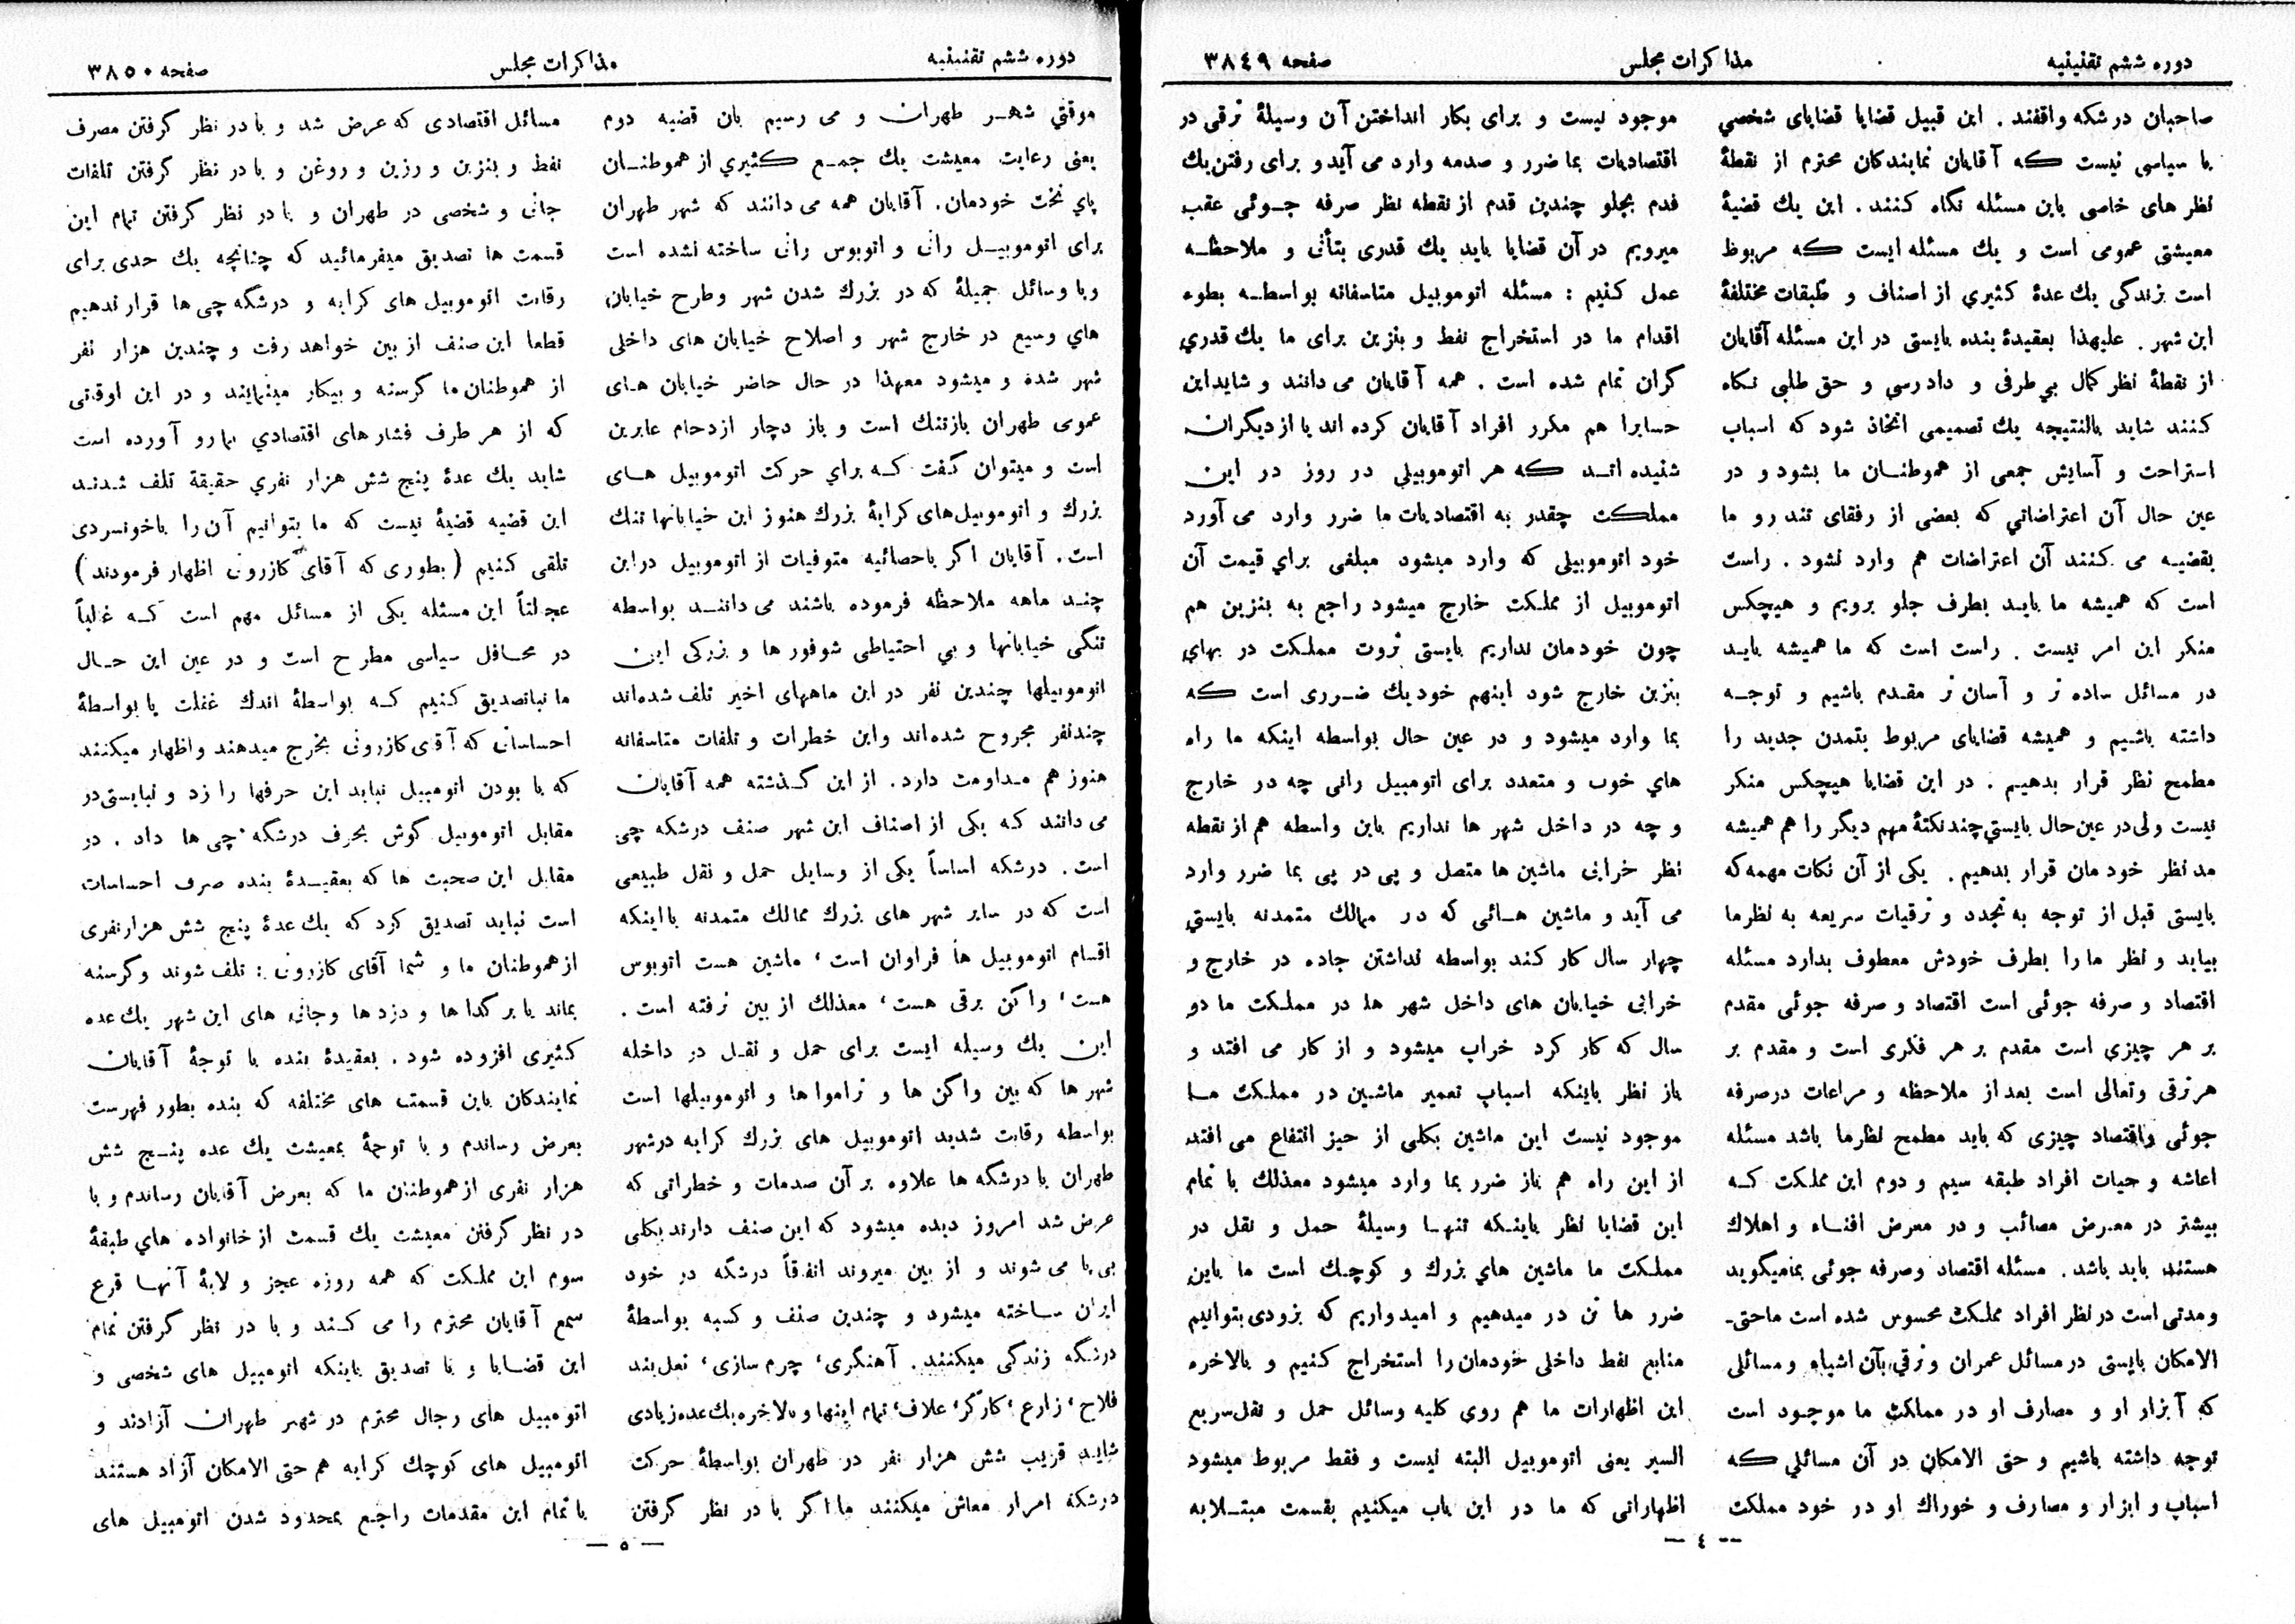 دوره ششم تقنینیه
مذاکرات مجلس
صفحه ۳۸٤۹
صاحبان درشکه واقفند . این قبیل قضایا قضایای شخصي
یا سیاسی نیست که آقایان نمایندکان محترم از نقطهٔ
نظر های خاصی باین مسئله نگاه کنند . این یك قضیهٔ
معیشتی عمومی است و یك مسئله ایست که مربوط
است بزندگی یك عدهٔ کثیري از اصناف و طبقات مختلفهٔ
این شهر . علیهذا بعقیدهٔ بنده بایستی در این مسئله آقایان
از نقطهٔ نظر کمال بي طرفی و دادرسي و حق طلبی نگاه
کنند شاید بالنتیجه یك تصمیمی اتخاذ شود که اسباب
استراحت و آسایش جمعی از هموطنان ما بشود و در
عین حال آن اعتراضاتي که بعضی از رفقای تند رو ما
بقضیه می کنند آن اعتراضات هم وارد نشود . راست
است که همیشه ما باید بطرف جلو برویم و هیچکس
منکر این امر نیست . راست است که ما همیشه باید
در مسائل ساده تر و آسان تر مقدم باشیم و توجه
داشته باشیم و همیشه قضایای مربوط بتمدن جدید را
مطمح نظر قرار بدهیم . در این قضایا هیچکس منکر
نیست ولی در عین حال بایستي چند نکتهٔ مهم دیگر را هم همیشه
مد نظر خودمان قرار بدهیم . یکی از آن نکات مهمه که
بایستی قبل از توجه به تجدد و ترقیات سریعه به نظر ما
بیاید و نظر ما را بطرف خودش معطوف بدارد مسئله
اقتصاد و صرفه جوئی است اقتصاد و صرفه جوئی مقدم
بر هر چیزي است مقدم بر هر فکری است و مقدم بر
هر ترقی و تعالی است بعد از ملاحظه و مراعات در صرفه
جوئی و اقتصاد چیزی که باید مطمح نظر ما باشد مسئله
اعاشه و حیات افراد طبقه سیم و دوم این مملکت که
بیشتر در معرض مصائب و در معرض افناء و اهلاك
هستند باید باشد . مسئله اقتصاد و صرفه جوئی بما میگوید
و مدتی است در نظر افراد مملکت محسوس شده است ما حتی ـ
الامکان بایستی در مسائل عمران و ترقي بآن اشیاء و مسائلی
که آبزار او و مصارف او در مملکت ما موجود است
توجه داشته باشیم و حتی الامکان در آن مسائلي که
اسباب و ابزار و مصارف و خوراك او در خود مملکت
موجود نیست و برای بکار انداختن آن وسیلهٔ ترقی در
اقتصادیات بما ضرر و صدمه وارد می آید و برای رفتن یك
قدم بجلو چندین قدم از نقطه نظر صرفه جوئی عقب
میرویم در آن قضایا باید یك قدری بتأنی و ملاحظه
عمل کنیم : مسئله اتوموبیل متاسفانه بواسطه بطوء
اقدام ما در استخراج نفط و بنزین برای ما یك قدري
گران تمام شده است . همه آقایان می دانند و شاید این
حسابرا هم مکرر افراد آقایان کرده اند یا از دیگران
شنیده اند که هر اتوموبیلي در روز در این
مملکت چقدر به اقتصادیات ما ضرر وارد می آورد
خود اتوموبیلی که وارد میشود مبلغی براي قیمت آن
اتوموبیل از مملکت خارج میشود راجع به بنزین هم
چون خودمان نداریم بایستی ثروت مملکت در بهاي
بنزین خارج شود اینهم خود یك ضرری است که
بما وارد میشود و در عین حال بواسطه اینکه ما راه
هاي خوب و متعدد برای اتومبیل رانی چه در خارج
و چه در داخل شهر ها نداریم باین واسطه هم از نقطه
نظر خرابی ماشین ها متصل و پی در پی بما ضرر وارد
می آید و ماشین هائی که در ممالك متمدنه بایستي
چهار سال کار کند بواسطه نداشتن جاده در خارج و
خرابی خیابان های داخل شهر ها در مملکت ما دو
سال که کار کرد خراب میشود و از کار می افتد و
باز نظر باینکه اسباب تعمیر ماشین در مملکت ما
موجود نیست این ماشین بکلی از حیز انتفاع می افتد
از این راه هم باز ضرر بما وارد میشود معذلك با تمام
این قضایا نظر باینکه تنها وسیلهٔ حمل و نقل در
مملکت ما ماشین هاي بزرك و کوچك است ما باین
ضرر ها تن در میدهیم و امیدواریم که بزودی بتوانیم
منابع نفط داخلی خودمان را استخراج کنیم و بالاخره
این اظهارات ما هم روی کلیه وسائل حمل و نقل سریع
السیر یعنی اتوموبیل البته نیست و فقط مربوط میشود
اظهاراتی که ما در این باب میکنیم بقسمت مبتلابه
— ٤ —
دوره ششم تقنینیه
مذاکرات مجلس
صفحه ۳۸۵۰
موقتي شهر طهران و می رسیم بان قضیه دوم
یعنی رعایت معیشت یك جمع کثیري از هموطنان
پاي تخت خودمان . آقایان همه می دانند که شهر طهران
برای اتوموبیل رانی و اتوبوس رانی ساخته نشده است
و با وسائل جمیلهٔ که در بزرك شدن شهر و طرح خیابان
هاي وسیع در خارج شهر و اصلاح خیابان های داخلی
شهر شده و میشود معهذا در حال حاضر خیابان های
عموی طهران باز تنك است و باز دچار ازدحام عابرین
است و میتوان گفت که براي حرکت اتوموبیل های
بزرك و اتوموبیل های کرایهٔ بزرك هنوز این خیابانها تنك
است . آقایان اکر باحصائیه متوفیات از اتوموبیل در این
چند ماهه ملاحظه فرموده باشند می دانند بواسطه
تنگی خیابانها و بي احتیاطی شوفور ها و بزرکی این
اتوموبیلها چندین نفر در این ماههای اخیر تلف شده اند
چند نفر مجروح شده اند و این خطرات و تلفات متاسفانه
هنوز هم مداومت دارد . از این گذشته همه آقایان
می دانند که یکی از اصناف این شهر صنف درشکه چی
است . درشکه اساساً یکی از وسایل حمل و نقل طبیعی
است که در سایر شهر های بزرك ممالك متمدنه با اینکه
اقسام اتوموبیل ها فراوان است ، ماشین هست اتوبوس
هست ، واکن برقی هست ، معذلك از بین نرفته است .
این یك وسیله ایست برای حمل و نقل در داخله
شهر ها که بین واکن ها و تراموا ها و اتوموبیلها است
بواسطه رقابت شدید اتوموبیل های بزرك کرایه در شهر
طهران با درشگه ها علاوه بر آن صدمات و خطراتی که
عرض شد امروز دیده میشود که این صنف دارند بکلی
بی پا می شوند و از بین میروند اتفاقاً درشگه در خود
ایران ساخته میشود و چندین صنف و کسبه بواسطهٔ
درشگه زندگی میکنند . آهنگری ، چرم سازی ، نعل بند
فلاح ، زارع ، کارگر ، علاف ، تمام اینها و بالاخره یك عده زیادی
شاید قریب شش هزار نفر در طهران بواسطهٔ حرکت
درشکه امرار معاش میکنند ما اگر با در نظر گرفتن
مسائل اقتصادی که عرض شد و با در نظر گرفتن مصرف
نفط و بنزین و رزین و روغن و با در نظر گرفتن تلفات
جانی و شخصی در طهران و با در نظر گرفتن تمام این
قسمت ها تصدیق میفرمائید که چنانچه یك حدی برای
رقابت اتوموبیل های کرایه و درشگه چی ها قرار ندهیم
قطعا این صنف از بین خواهد رفت و چندین هزار نفر
از هموطنان ما گرسنه و بیکار مینمانند و در این اوقاتی
که از هر طرف فشار های اقتصادي بما رو آورده است
شاید یك عدهٔ پنج شش هزار نفري حقیقة تلف شدند
این قضیه قضیهٔ نیست که ما بتوانیم آن را باخونسردی
تلقی کنیم ( بطوری که آقای کازرونی اظهار فرمودند )
عجالتاً این مسئله یکی از مسائل مهم است که غالباً
در محافل سیاسی مطرح است و در عین این حال
ما نباید تصدیق کنیم که بواسطهٔ اندك غفلت یا بواسطهٔ
احساساتی که آقای کازرونی بخرج میدهند و اظهار میکنند
که با بودن اتومبیل نباید این حرفها را زد و نبایستی در
مقابل اتوموبیل گوش بحرف درشگه چی ها داد . در
مقابل این صحبت ها که بعقیدهٔ بنده صرف احساسات
است نباید تصدیق کرد که یك عدهٔ پنج شش هزار نفری
از هموطنان ما و شما آقای کازرونی : تلف شوند و گرسنه
بماند یا بر گداها و دزد ها و جانی های این شهر یك عده
کثیری افزوده شود . بعقیدهٔ بنده با توجهٔ آقایان
نمایندکان باین قسمت های مختلفه که بنده بطور فهرست
بعرض رساندم و با توجهٔ بمعیشت یك عده پنج شش
هزار نفری از هموطنان ما که بعرض آقایان رساندم و با
در نظر گرفتن معیشت یك قسمت از خانواده هاي طبقهٔ
سوم این مملکت که همه روزه عجز و لابهٔ آنها قرع
سمع آقایان محترم را می کند و با در نظر گرفتن تمام
این قضایا و با تصدیق باینکه اتومبیل های شخصی و
اتومبیل های رجال محترم در شهر طهران آزادند و
اتومبیل های کوچك کرایه هم حتی الامکان آزاد هستند
با تمام این مقدمات راجع بمحدود شدن اتومبیل های
— ۵ —